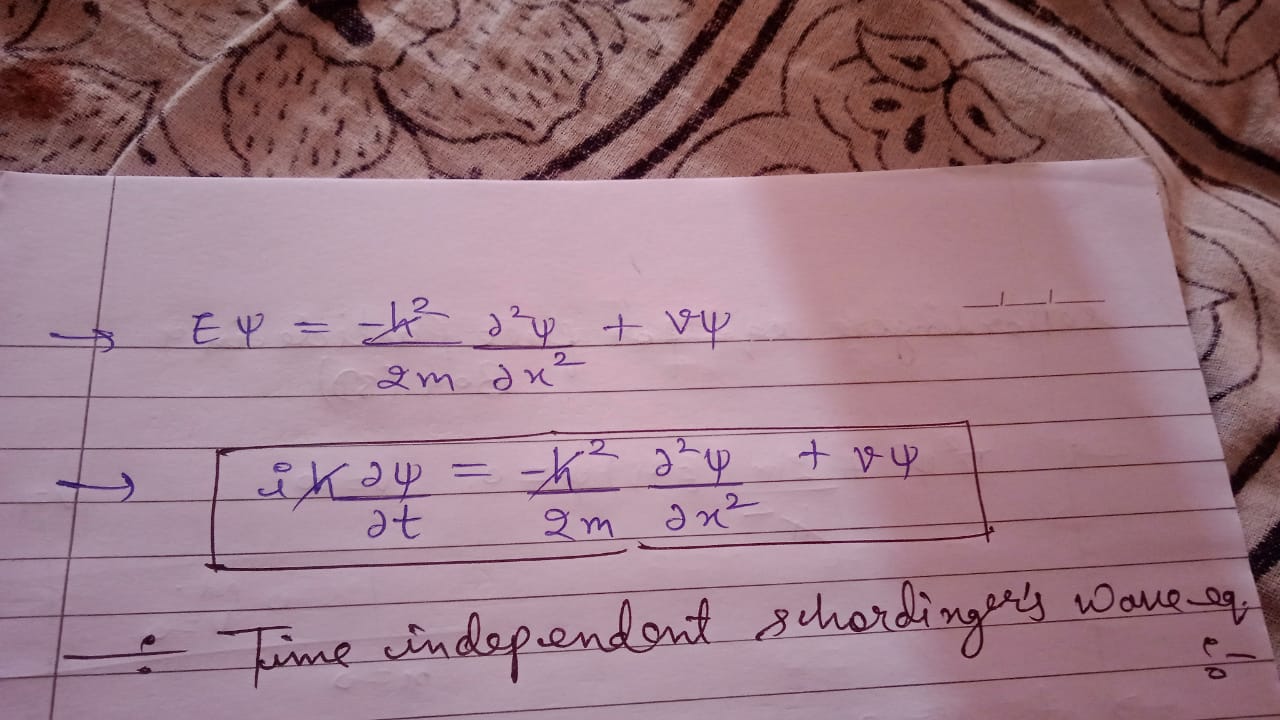 → Eψ = -ħ²/2m ∂²ψ/∂x² + Vψ
→ iħ ∂ψ/∂t = -ħ²/2m ∂²ψ/∂x² + vψ
÷ Time independent schordinger's wave eq. ÷